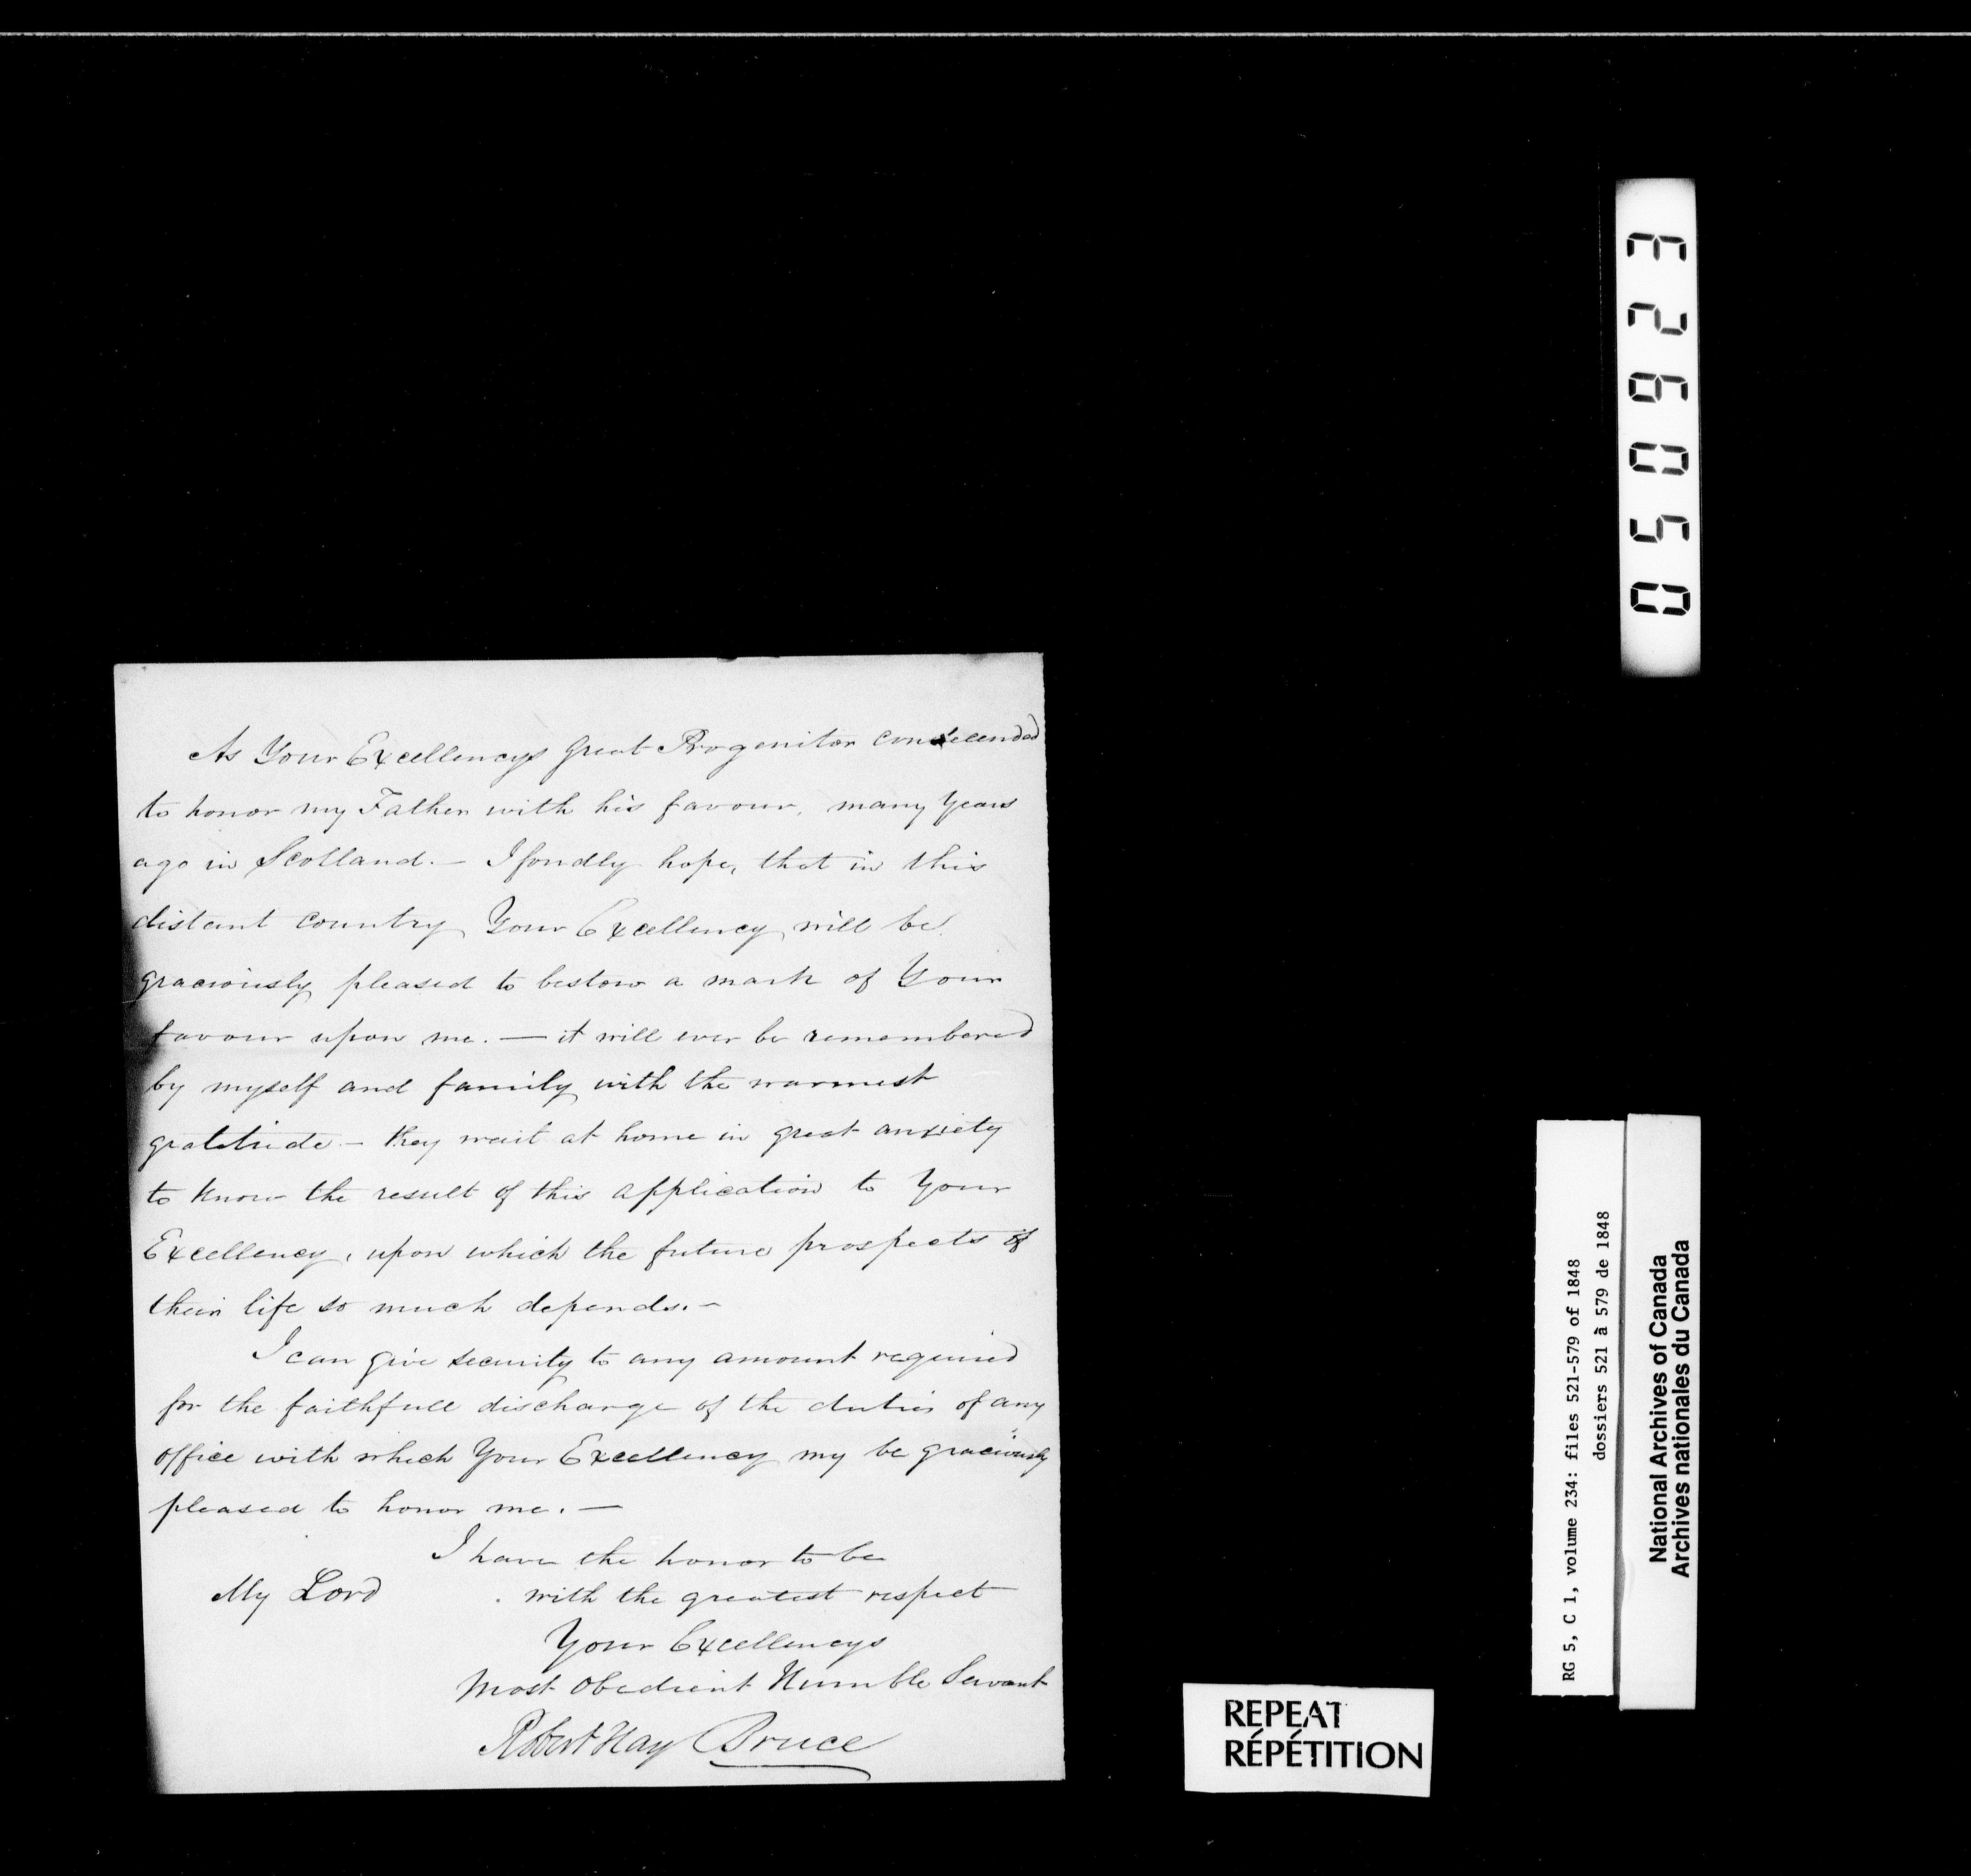 As Your Excellencys Great Progenitor condecended
to honor my Father with his favour, many years
ago in Scotland. — I fondly hope, that in this
distant country Your Excellency will be
graciously pleased to bestow a mark of Your
favour upon me. — it will ever be remembered
by myself and family with the warmest
gratitude — they wait at home in great anxiety
to know the result of this application to Your
Excellency, upon which the future prospects of
their life so much depends. —
I can give security to any amount required
for the faithfull discharge of the duties of any
office with which Your Excellency my be graciously
pleased to honor me. —
I have the honor to be
My Lord . with the greatest respect
Your Excellencys
Most Obedient Humble Servant
Robert Hay Bruce
REPEAT
RÉPÉTITION
RG 5, C 1, volume 234: files 521-579 of 1848
dossiers 521 à 579 de 1848
National Archives of Canada
Archives nationales du Canada
050923